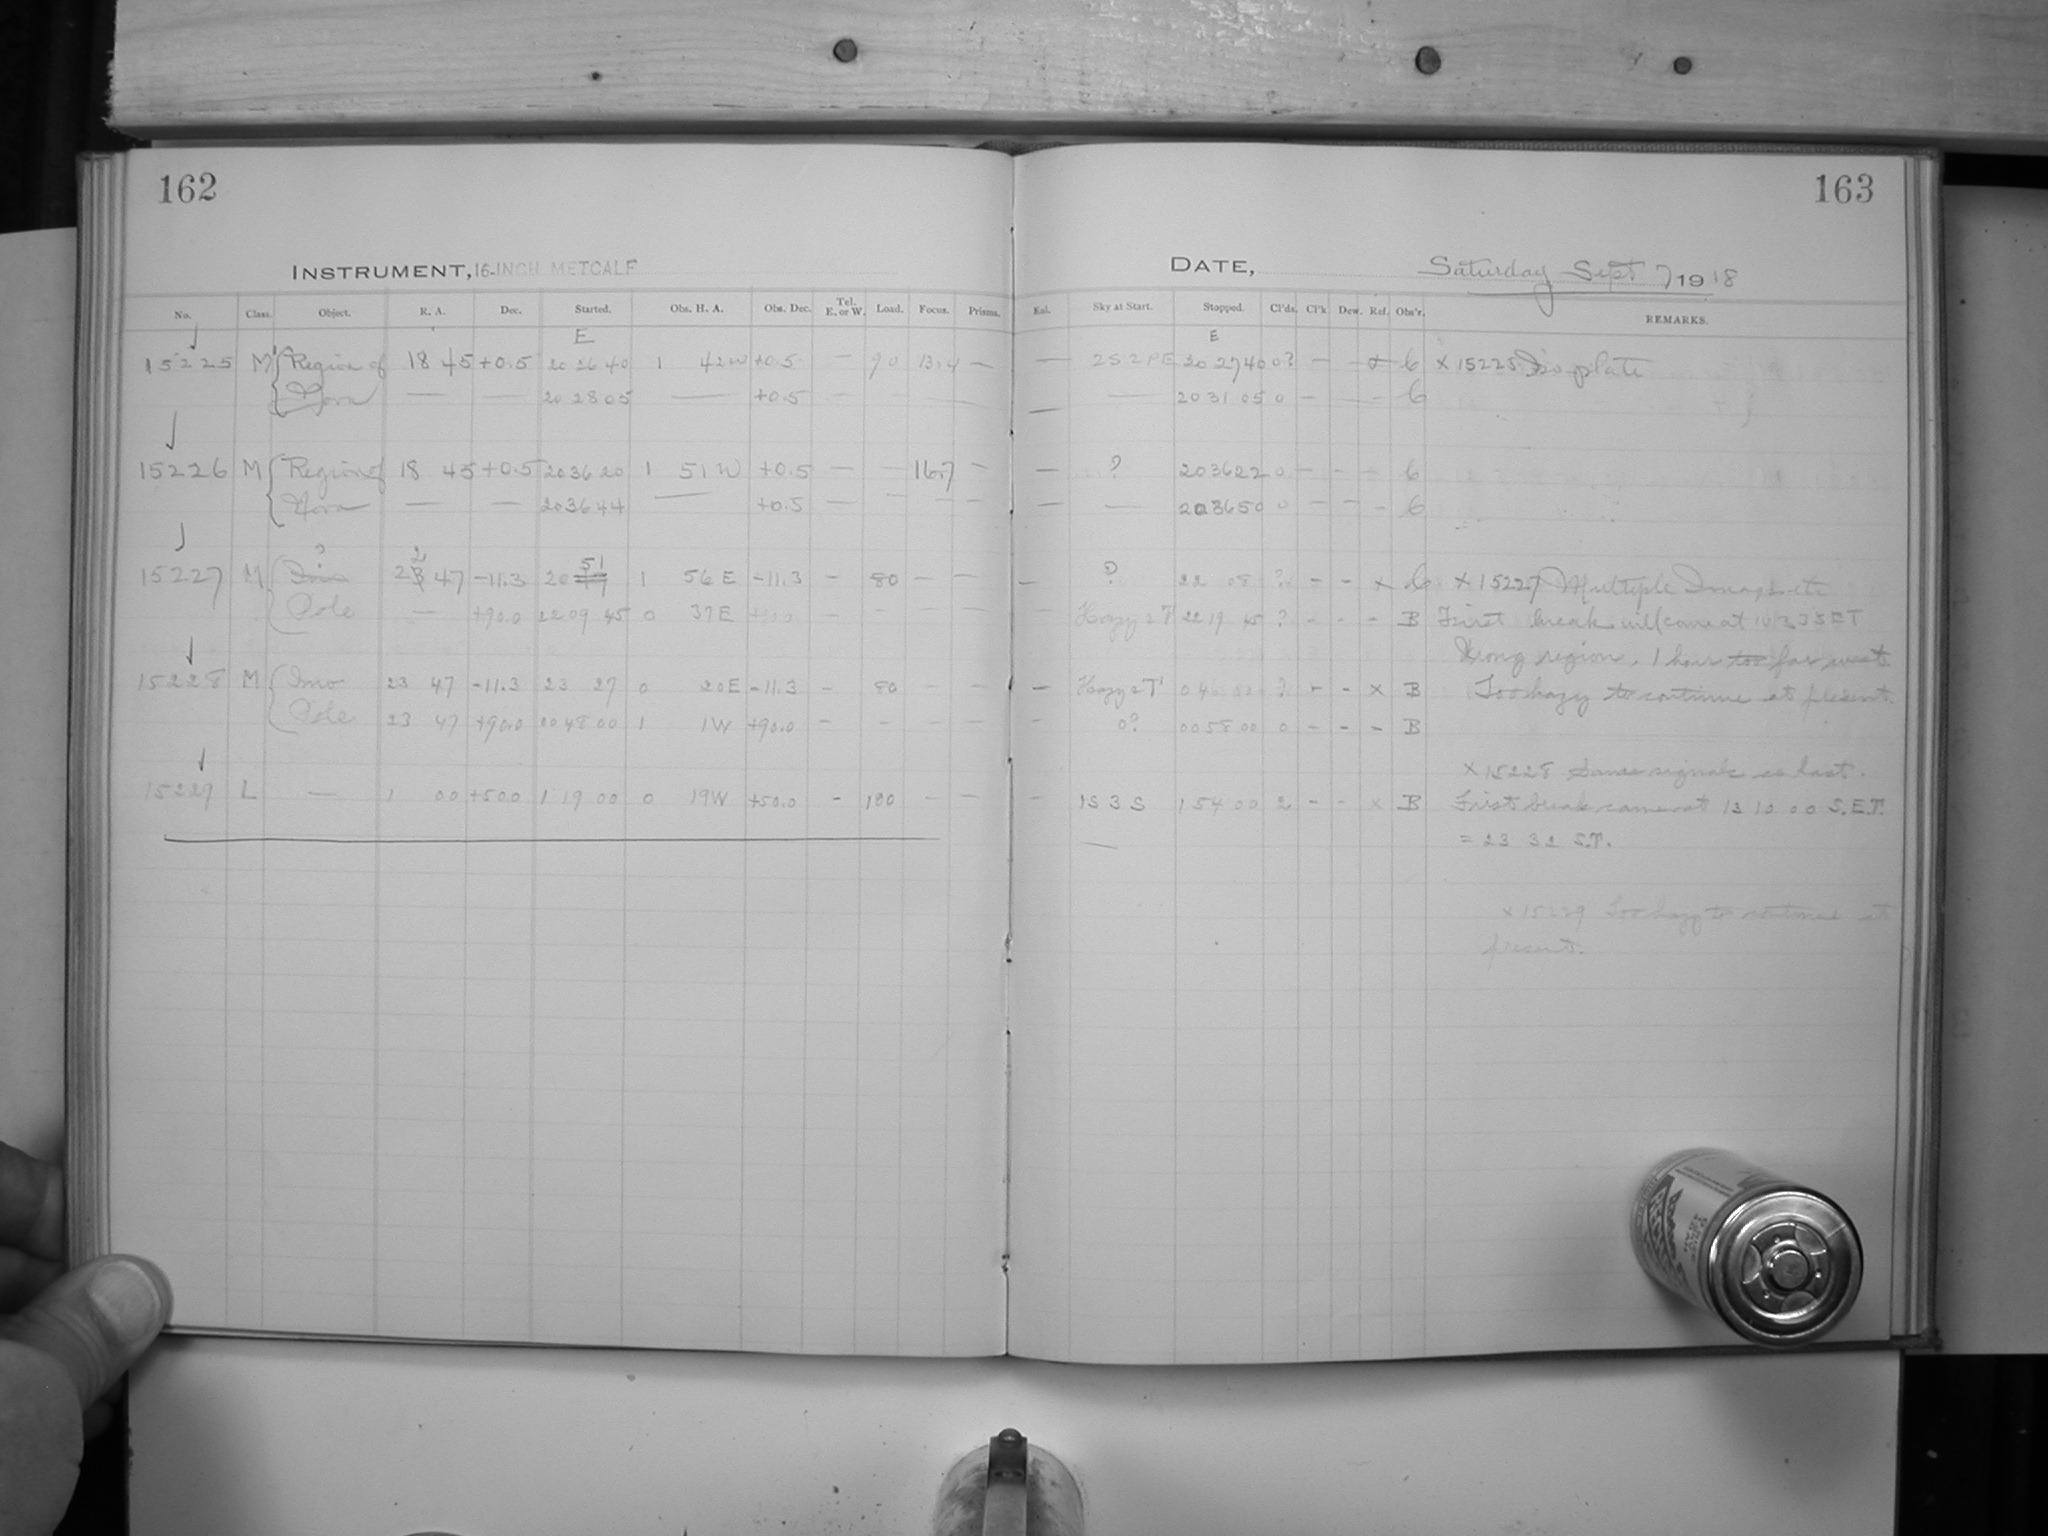 162
163
INSTRUMENT, 16-INCH METCALF
DATE, Saturday Sept 7 1918
No. Class. Object. R. A. Dec. Started. Obs. H. A. Obs. Dec. Tel. E. or W. Load. Focus. Prisms. Sky at Start. Stopped. Cl'ds. Cl'k Dew. Ref. Obs'r. REMARKS.
E E
15225 M Region of 18 45 +0.5 20 26 40 1 42 W +0.5 — 90 13.4 — — 2S 2PE 20 27 40 0? — — 6 × 15225 Iso plate
Nova — — 20 28 05 — +0.5 — — — — — — 20 31 05 0 — — — 6
15226 M Region of 18 45 +0.5 20 36 20 1 51 W +0.5 — — 16.7 — — ? 20 36 22 0 — — 6
Nova — — 20 36 44 — +0.5 — — — — — — 20 36 50 0 — — — 6
15227 M 47 -11.3 20 51 1 56 E -11.3 — 80 — — — ? 22 08 ? — — × 6 × 15227 Multiple
Pole — +90.0 22 09 45 0 37 E — Hazy 2T 22 19 45 ? - - - B First break will come at
Wrong region, 1 hour too far west.
15228 M Ino 23 47 -11.3 23 27 0 20 E -11.3 — 80 — — — Hazy 2T ? - - × B Too hazy to continue at present.
Pole 23 47 +90.0 00 48 00 1 1 W +90.0 — — — — — 0? 00 58 00 0 - - - B
× 15228 Same signals as last.
15229 L — 1 00 +50.0 1 19 00 0 19 W +50.0 - 100 — — — 1S 3S 1 54 00 2 - - × B First break came at 13 10 00 S.E.T.
= 23 32 S.T.
× 15229 Too hazy to continue at
present.